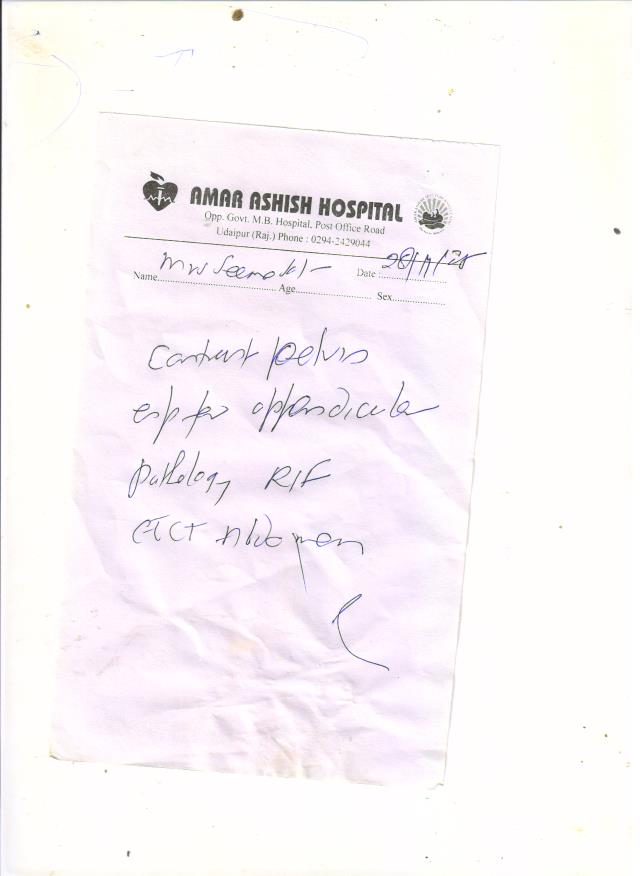 AMAR ASHISH HOSPITAL
Opp. Govt. M.B. Hospital, Post Office Road
Udaipur (Raj.) Phone : 0294-2429044
Name Mrs Seema Date :
Age Sex
Contrast pelvis
esp for appendicular
pathology RIF
CECT Abdomen